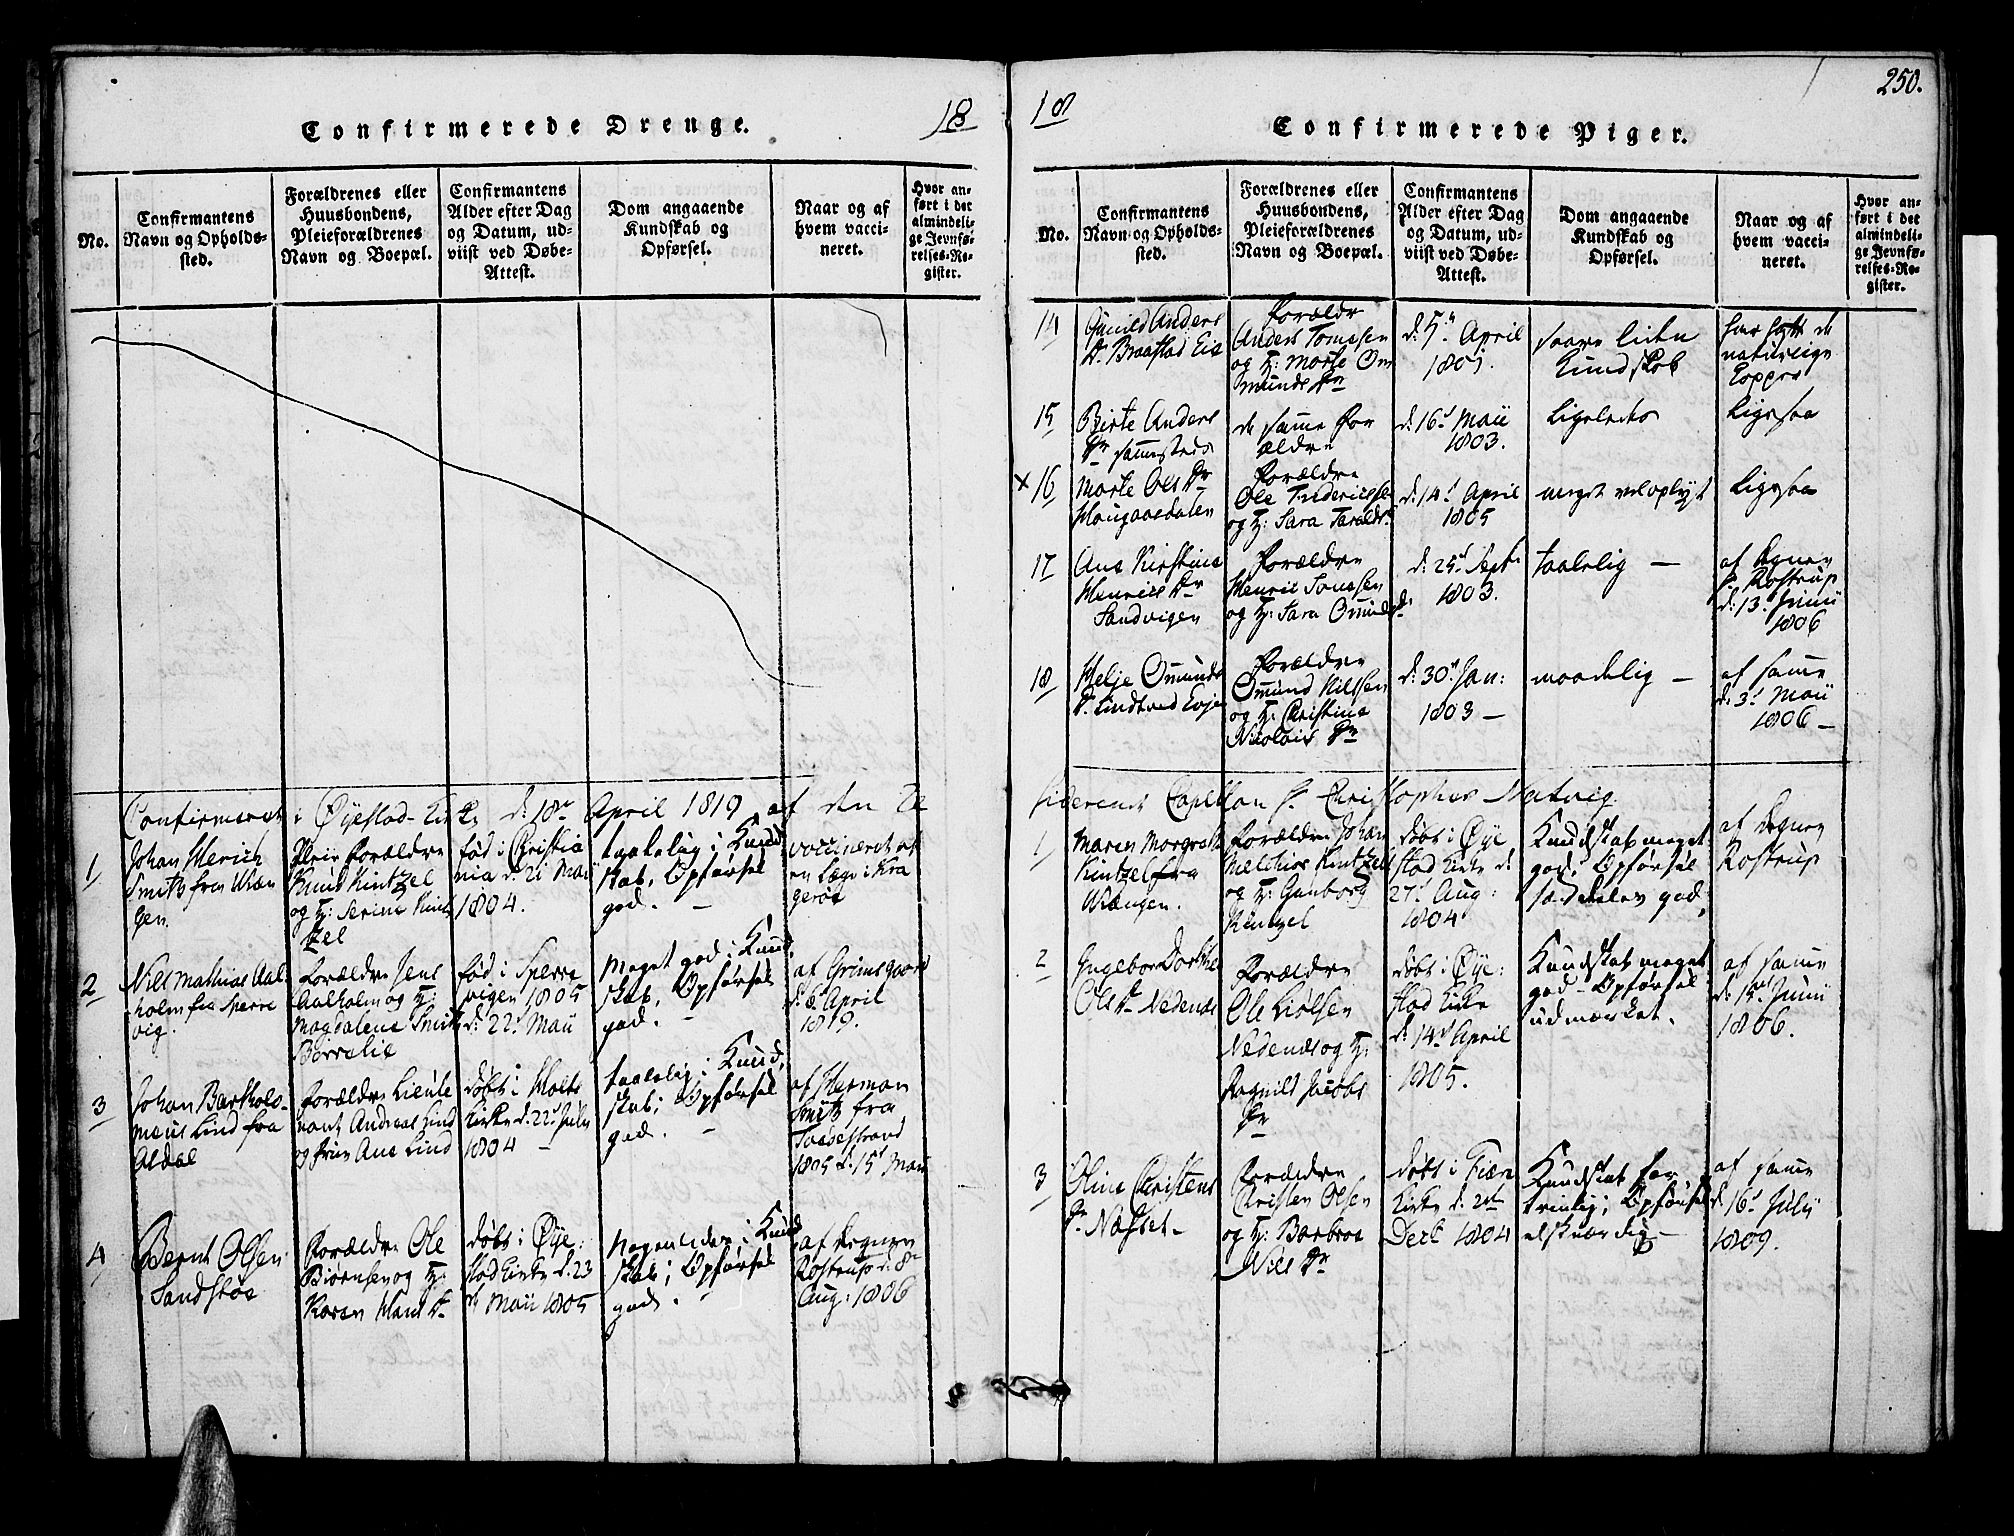 250.
Confirmerede Drenge.
18
No.
Confirmantens
Navn og Opholds-
sted.
Forældrenes eller
Huusbondens,
Pleieforældrenes
Navn og Boepæl.
Confirmantens
Alder efter Dag
og Datum, ud-
viist ved Døbe-
Attest.
Dom angaaende
Kundskab og
Opførsel.
Naar og af
hvem vacci-
neret.
Hvor an-
ført i det
almindeli-
ge Jevnfø-
relses-Re-
gister.
Confirmeret i Øyestad Kirke d: 18de April 1819 af den re
1
Johan
Smith fra Vræn
gen.
Pleie Forældre
Knud Kintzel
og H: Serine Kint
zel
fød i Christia
nia d: 21 Mai
1804.
taalelig i Kund
skab, Opførsel
god. –
vaccineret af
en Læge i Kra
gerøe
2
Niels Mathias Aal-
holm fra Sperre
vig.
Forældre Jens
Aalholm og H:
Magdalena Smith
fød i Sperre
vigen 1805
d: 22d Maii
Meget god i Kund
skab, Opførsel
god. –
af Grimsgaard
d: 6d April
1819.
3
Johan Bartholo-
meus Lind fra
Aldal
Forældre Lieute
nant Andreas Lind
og Frue Ane Lind
døbt i Holts
Kirke d: 22d July
1804 –
taalelig i Kund,
skab; Opførsel
god. –
af Herman
Smith fra
Tvedestrand
1805 d: 15d Maii
4
Bernt Olsen
Sandstøe
Forældre Ole
Biørnsen og H:
Karen Hans D.
døbt i Øye-
stad Kirke d. 23
de Maii 1805
Nogenledes i Kund
skab; Opførsel
god. –
af Degnen
Rostrup d: 8de
Aug: 1806
18
Confirmerede Piger.
No.
Confirmantens
Navn og Opholds-
sted.
Forældrenes eller
Huusbondens,
Pleieforældrenes
Navn og Boepæl.
Confirmantens
Alder efter Dag
og Datum, ud-
viist ved Døbe-
Attest.
Dom angaaende
Kundskab og
Opførsel.
Naar og af
hvem vacci-
neret.
Hvor an-
ført i det
almindeli-
ge Jevnfø-
relses-Re-
gister.
14
Gunild Anders
D. Braastad Eie
Forældre
Anders Tomesen
og H: Marte Om
munds Dr
d: 5te April
1801.
saare liden
Kundskab
har havt de
naturlige
Kopper
15
Birte Anders
Dr sammesteds
de samme For
ældre
d: 16d Maii
1803.
Ligeledes
Ligesaa
x 16
Marte Ols Dr
Haugaasdalen
Forældre
Ole Fridericsen
og H: Sara Taralds
d: 14d April
1805
meget veloplyst
Ligesaa
17
Ane Kirstine
Henrics Dr
Sandvigen
Forældre
Henric Tomesen
og H: Sara Omunds Dr
d: 25d Sept:
1803.
taalelig –
af Degnen
Hr Rostrup
d: 13d Junii
1806
18
Helje Omunds
D. Lindtved Eje
Forældre
Omund Nilssen
og H: Christine
Nicolais Dr
d: 30te Jan:
1803 –
maadelig –
af samme
d: 3d Maii
1806 –
siderende Capellan Hr Christopher Natvig.
1
Maren Margrethe
Kintzel fra
Vrængen.
Forældre Johan
Melchior Kintzel
og H: Gunborg
Kintzel
døbt i Øye
stad Kirke d:
27d Aug:
1804
Kundskab meget
god, Opførsel
god,
af Degnen
Rostrup
2
Ingebor Dorthe
Ols Dr Nedenæs
Forældre
Ole Liølsen
Nedenæs og H:
Ragnild Jacobs
Dr
døbt i Øye-
stad Kirke
d: 14d April
1805.
Kundskab meget
god – Opførsel
udmærket.
af samme
d: 15d Junii
1806.
3
Oline Christens
Dr Næsset –
Forældre
Christen Olsen
og H: Barbroe
Niels Dr
døbt i Fiære
Kirke d: 2den
Decb 1804
Kundskab for
trinlig; Opførsel
elskværdig –
af samme
d: 16d July
1809.